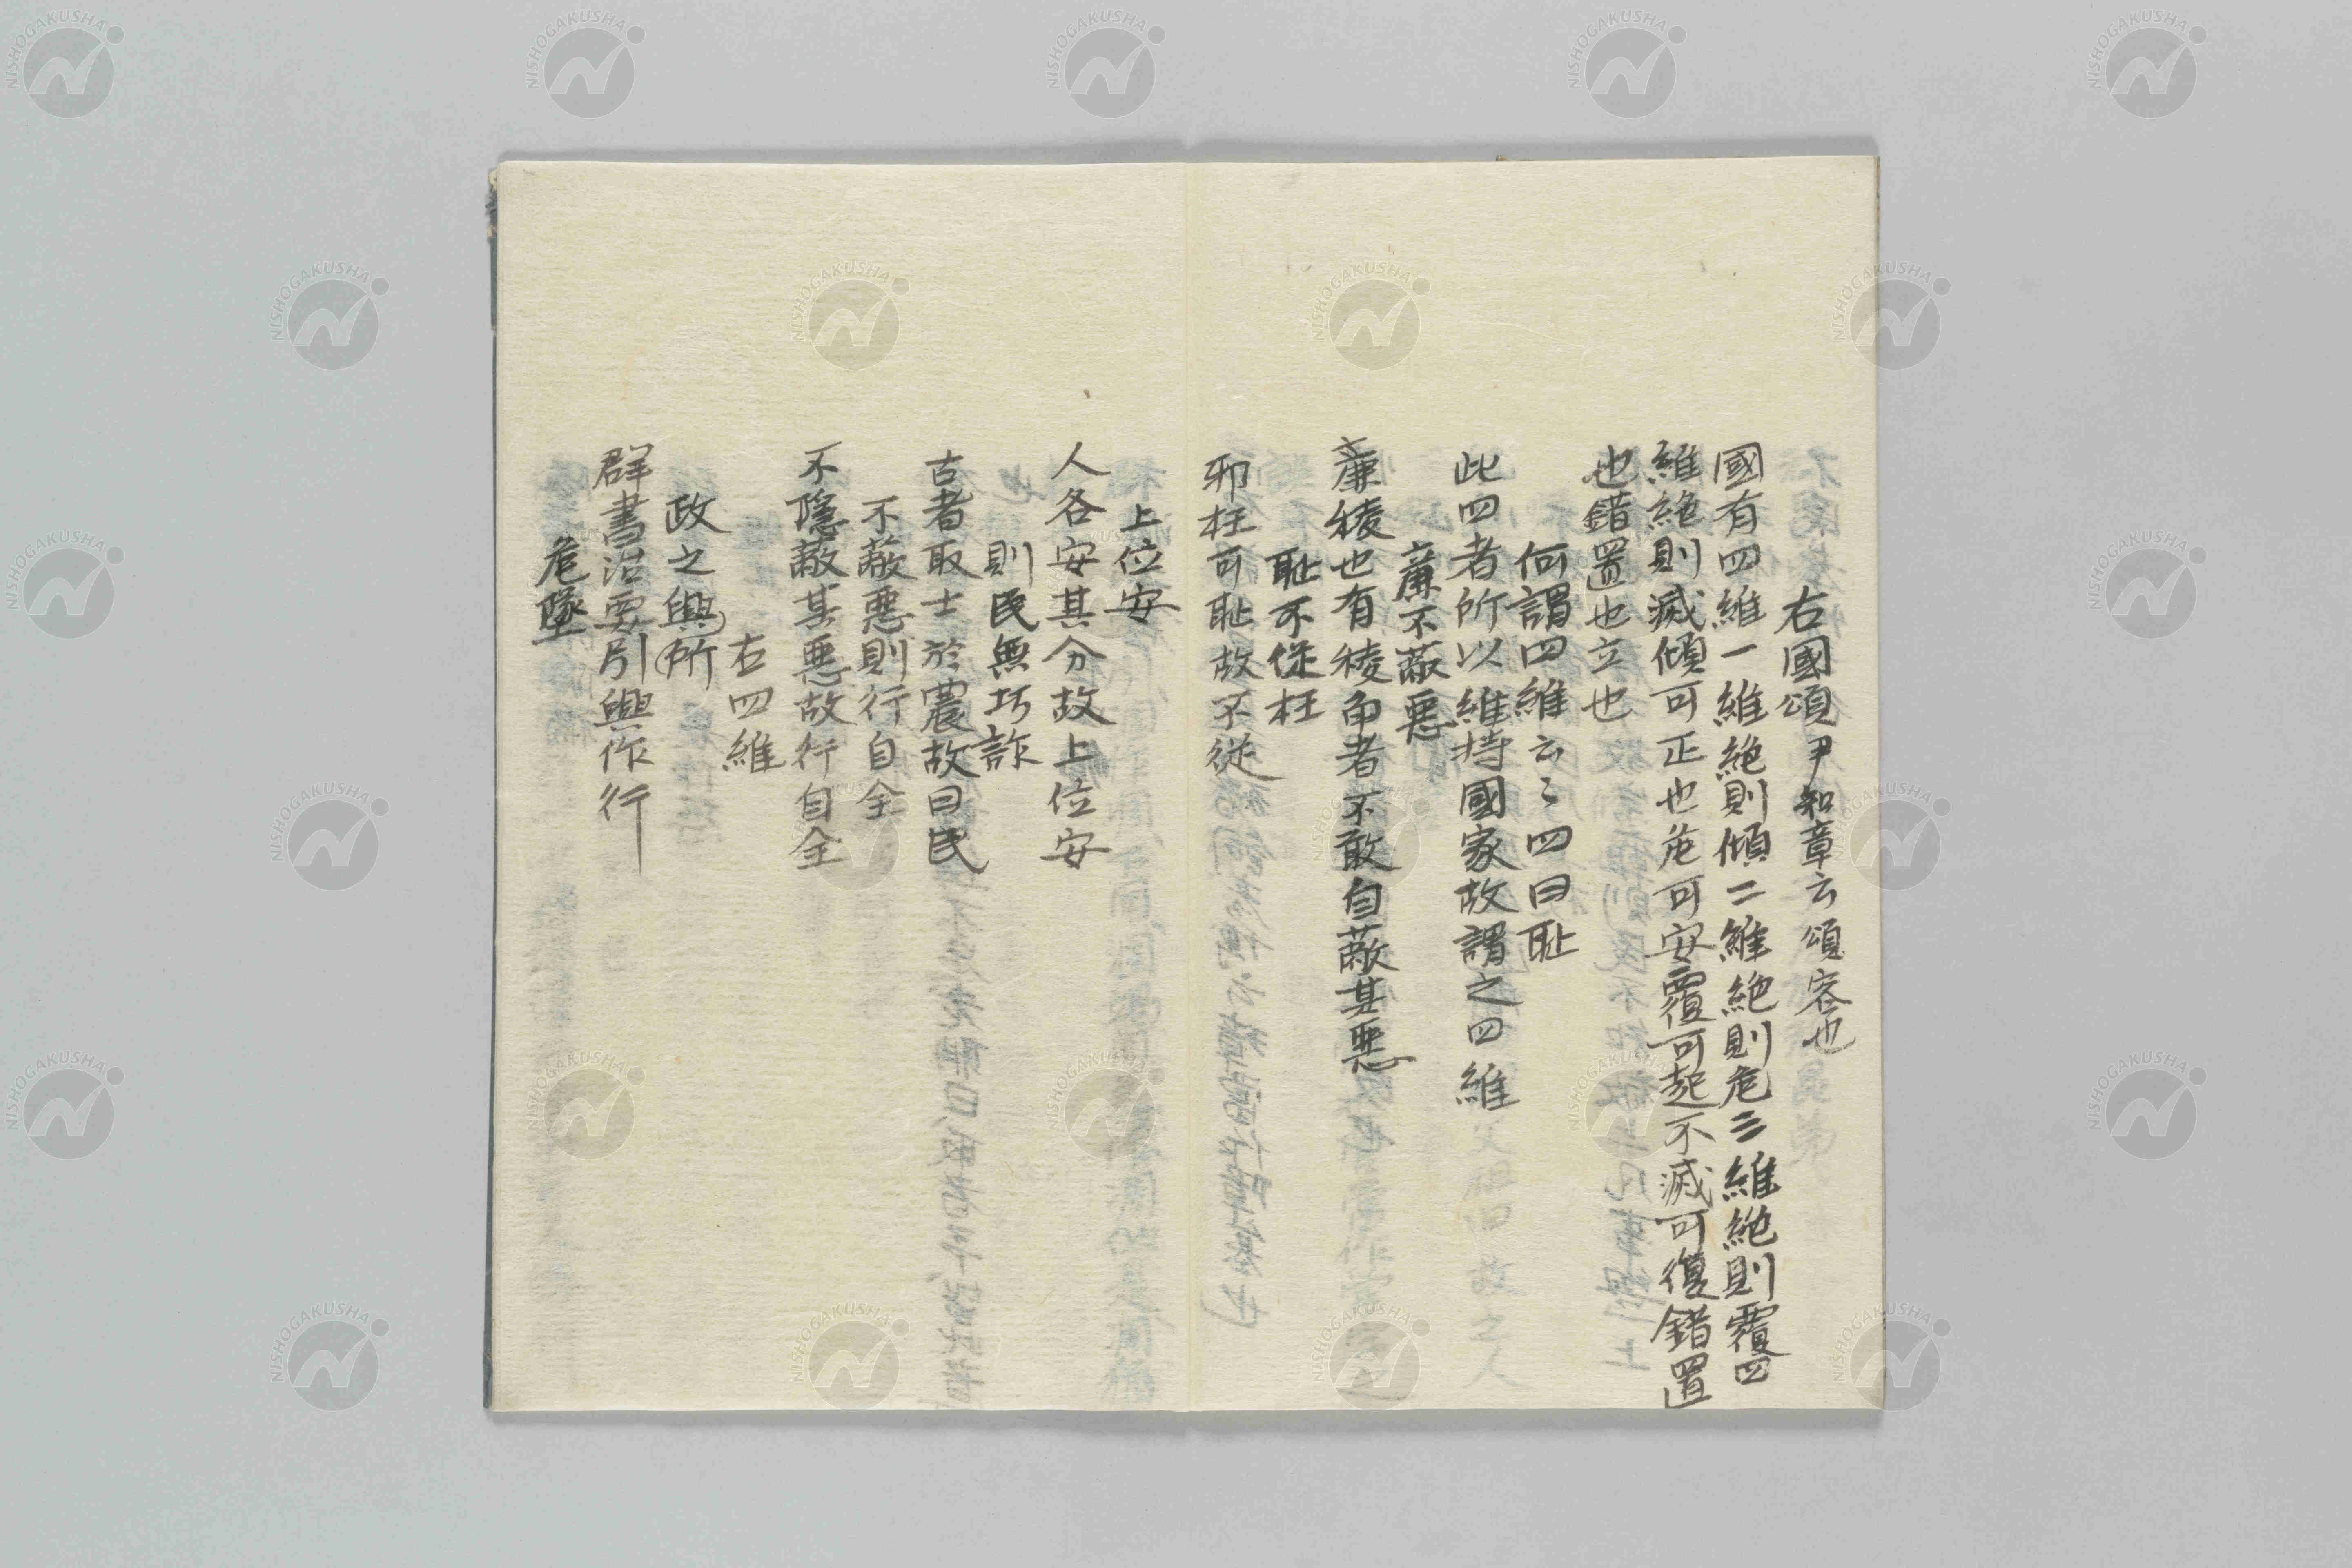 右國頌 尹知章云頌容也
國有四維一維絶則傾二維絶則危三維絶則覆四
維絶則滅傾可正也危可安覆可起不滅可復錯置
也錯置也立也
何謂四維云〻四曰耻
此四者所以維持國家故謂之四維
廉不蔽惡
廉稜也有稜角者不敢自蔽其惡
耻不從枉
邪枉可耻故不從
上位安
人各安其分故上位安
則民無巧詐
古者取士於農故曰民
不蔽惡則行自全
不隱蔽其惡故行自全
右四維
政之興所
群書治要引興作行
危墜
NISHOGAKUSHA